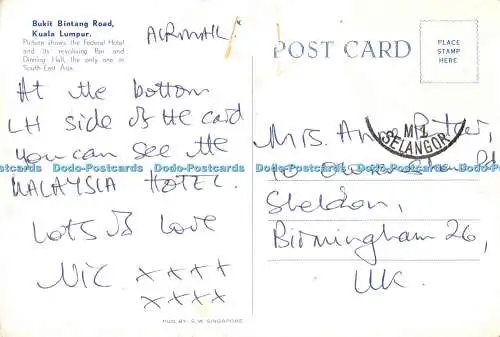 Bukit Bintang Road,
Kuala Lumpur.
Picture shows the Federal Hotel
and its revolving Bar and
Dinning Hall, the only one in
South-East Asia.
AIRMAIL.
At the bottom
LH side of the card
you can see the
MALAYSIA HOTEL.
Lots of Love
Nic xxxx
xxxx
PUB. BY: S.W. SINGAPORE
POST CARD
PLACE
STAMP
HERE
SELANGOR
Mrs. Ann
Rd
Sheldon,
Birmingham 26,
UK.
Dodo-Postcards Dodo-Postcards Dodo-Postcards Dodo-Postcards